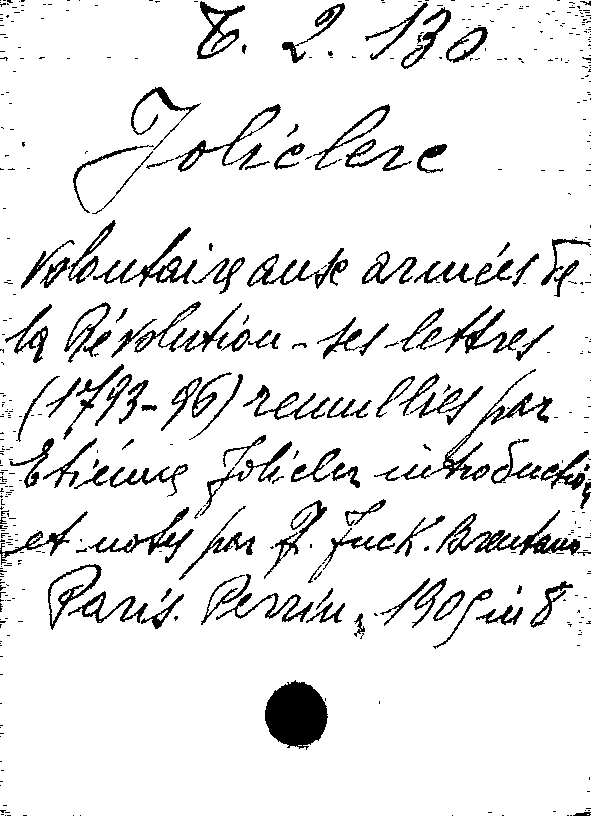 T. 2. 130
Joliclerc
Volontaire aux armées de
la Révolution - ses lettres
(1793-96) recueillies par
Etienne Joliclerc introduction
et notes par F. Funck. Brentano
Paris. Perrin, 1905 in 8